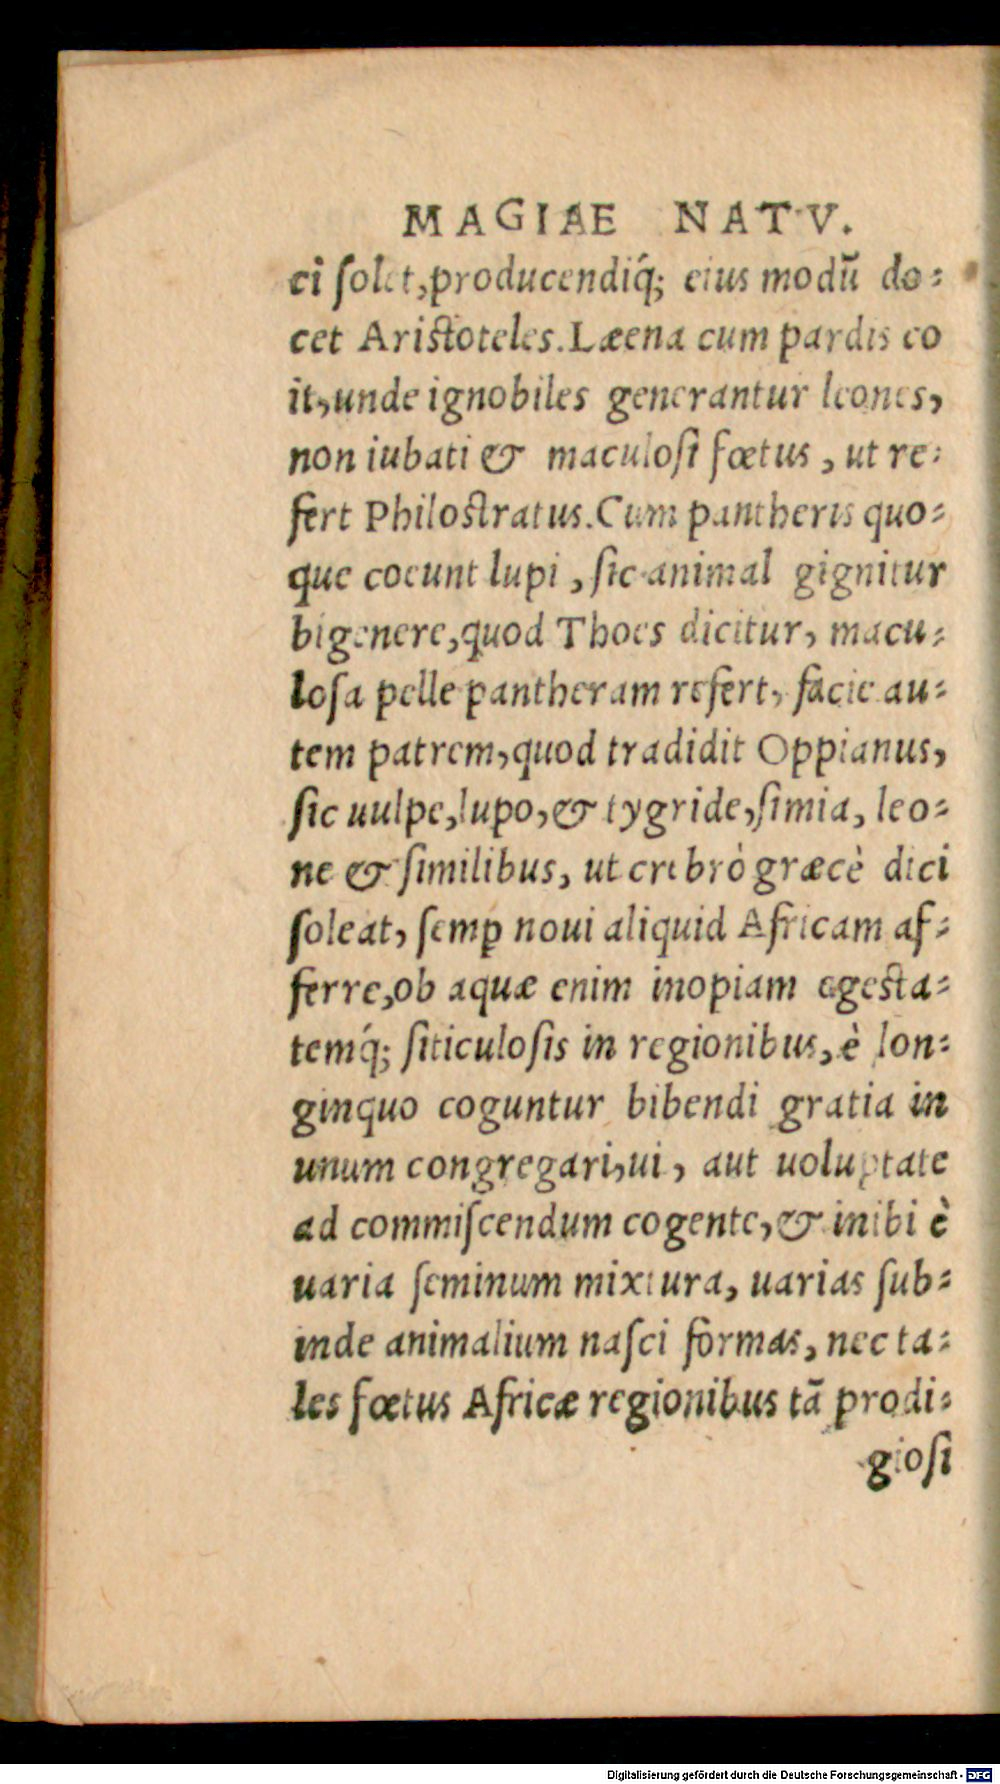 MAGIAE NATV.
ci ſolet, producendiq́; eius modū do⸗
cet Ariſtoteles. Læena cum pardis co
it, unde ignobiles generantur leones,
non iubati & maculoſi fœtus, ut re⸗
fert Philoſtratus. Cum pantheris quo⸗
que coeunt lupi, ſic animal gignitur
bigenere, quod Thoes dicitur, macu⸗
loſa pelle pantheram refert, facie au⸗
tem patrem, quod tradidit Oppianus,
ſic uulpe, lupo, & tygride, ſimia, leo⸗
ne & ſimilibus, ut crebrò græcè dici
ſoleat, ſemꝑ noui aliquid Africam af⸗
ferre, ob aquæ enim inopiam egeſta⸗
temq́; ſiticuloſis in regionibus, è lon⸗
ginquo coguntur bibendi gratia in
unum congregari, ui, aut uoluptate
ad commiſcendum cogente, & inibi è
uaria ſeminum mixtura, uarias ſub⸗
inde animalium naſci formas, nec ta⸗
les fœtus Africæ regionibus tā prodi⸗
gioſi
Digitalisierung gefördert durch die Deutsche Forschungsgemeinschaft - DFG